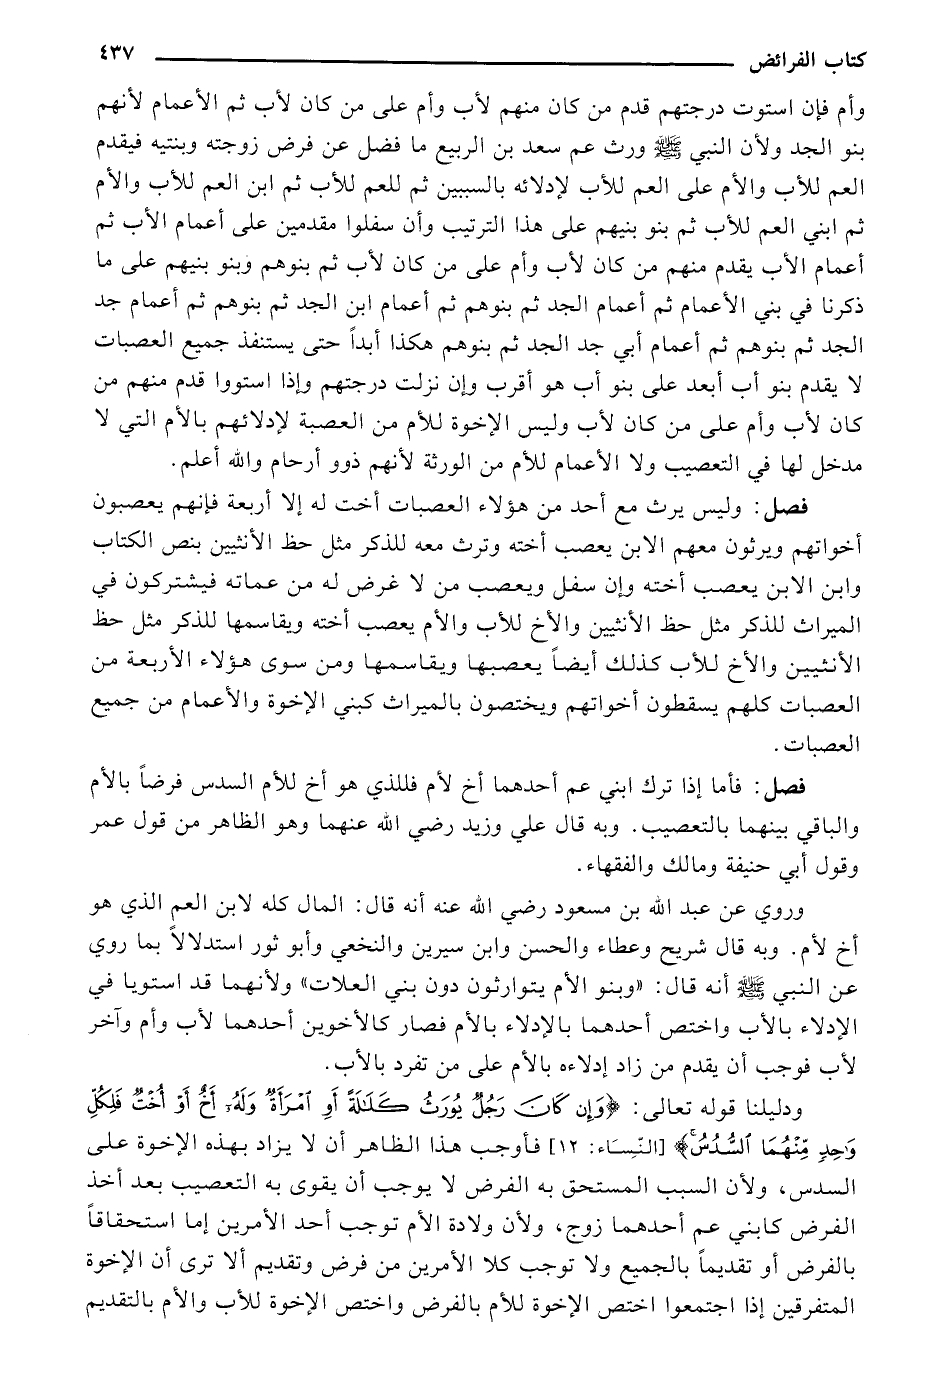 كتاب الفرائض ٤٣٧
وأم فإن استوت درجتهم قدم من كان منهم لأب وأم على من كان لأب ثم الأعمام لأنهم
بنو الجد ولأن النبي ﷺ ورث عم سعد بن الربيع ما فضل عن فرض زوجته وبنتيه فيقدم
العم للأب والأم على العم للأب لإدلائه بالسببين ثم للعم للأب ثم ابن العم للأب والأم
ثم ابني العم للأب ثم بنو بنيهم على هذا الترتيب وأن سفلوا مقدمين على أعمام الأب ثم
أعمام الأب يقدم منهم من كان لأب وأم على من كان لأب ثم بنوهم وبنو بنيهم على ما
ذكرنا في بني الأعمام ثم أعمام الجد ثم بنوهم ثم أعمام ابن الجد ثم بنوهم ثم أعمام جد
الجد ثم بنوهم ثم أعمام أبي جد الجد ثم بنوهم هكذا أبداً حتى يستنفذ جميع العصبات
لا يقدم بنو أب أبعد على بنو أب هو أقرب وإن نزلت درجتهم وإذا استووا قدم منهم من
كان لأب وأم على من كان لأب وليس الإخوة للأم من العصبة لإدلائهم بالأم التي لا
مدخل لها في التعصيب ولا الأعمام للأم من الورثة لأنهم ذوو أرحام والله أعلم.
فصل: وليس يرث مع أحد من هؤلاء العصبات أخت له إلا أربعة فإنهم يعصبون
أخواتهم ويرثون معهم الابن يعصب أخته وترث معه للذكر مثل حظ الأنثيين بنص الكتاب
وابن الابن يعصب أخته وإن سفل ويعصب من لا غرض له من عماته فيشتركون في
الميراث للذكر مثل حظ الأنثيين والأخ للأب والأم يعصب أخته ويقاسمها للذكر مثل حظ
الأنثيين والأخ للأب كذلك أيضاً يعصبها ويقاسمها ومن سوى هؤلاء الأربعة من
العصبات كلهم يسقطون أخواتهم ويختصون بالميراث كبني الإخوة والأعمام من جميع
العصبات.
فصل: فأما إذا ترك ابني عم أحدهما أخ لأم فللذي هو أخ للأم السدس فرضاً بالأم
والباقي بينهما بالتعصيب. وبه قال علي وزيد رضي الله عنهما وهو الظاهر من قول عمر
وقول أبي حنيفة ومالك والفقهاء.
وروي عن عبد الله بن مسعود رضي الله عنه أنه قال: المال كله لابن العم الذي هو
أخ لأم. وبه قال شريح وعطاء والحسن وابن سيرين والنخعي وأبو ثور استدلالاً بما روي
عن النبي ﷺ أنه قال: «وبنو الأم يتوارثون دون بني العلات» ولأنهما قد استويا في
الإدلاء بالأب واختص أحدهما بالإدلاء بالأم فصار كالأخوين أحدهما لأب وأم وآخر
لأب فوجب أن يقدم من زاد إدلاءه بالأم على من تفرد بالأب.
ودليلنا قوله تعالى: ﴿وَإِن كَانَ رَجُلٌ يُورَثُ كَلَالَةً أَوِ امْرَأَةٌ وَلَهُ أَخٌ أَوْ أُخْتٌ فَلِكُلِّ
وَاحِدٍ مِّنْهُمَا السُّدُسُ﴾ [النِّسَاء: ١٢] فأوجب هذا الظاهر أن لا يزاد بهذه الإخوة على
السدس، ولأن السبب المستحق به الفرض لا يوجب أن يقوى به التعصيب بعد أخذ
الفرض كابني عم أحدهما زوج، ولأن ولادة الأم توجب أحد الأمرين إما استحقاقاً
بالفرض أو تقديماً بالجميع ولا توجب كلا الأمرين من فرض وتقديم ألا ترى أن الإخوة
المتفرقين إذا اجتمعوا اختص الإخوة للأم بالفرض واختص الإخوة للأب والأم بالتقديم